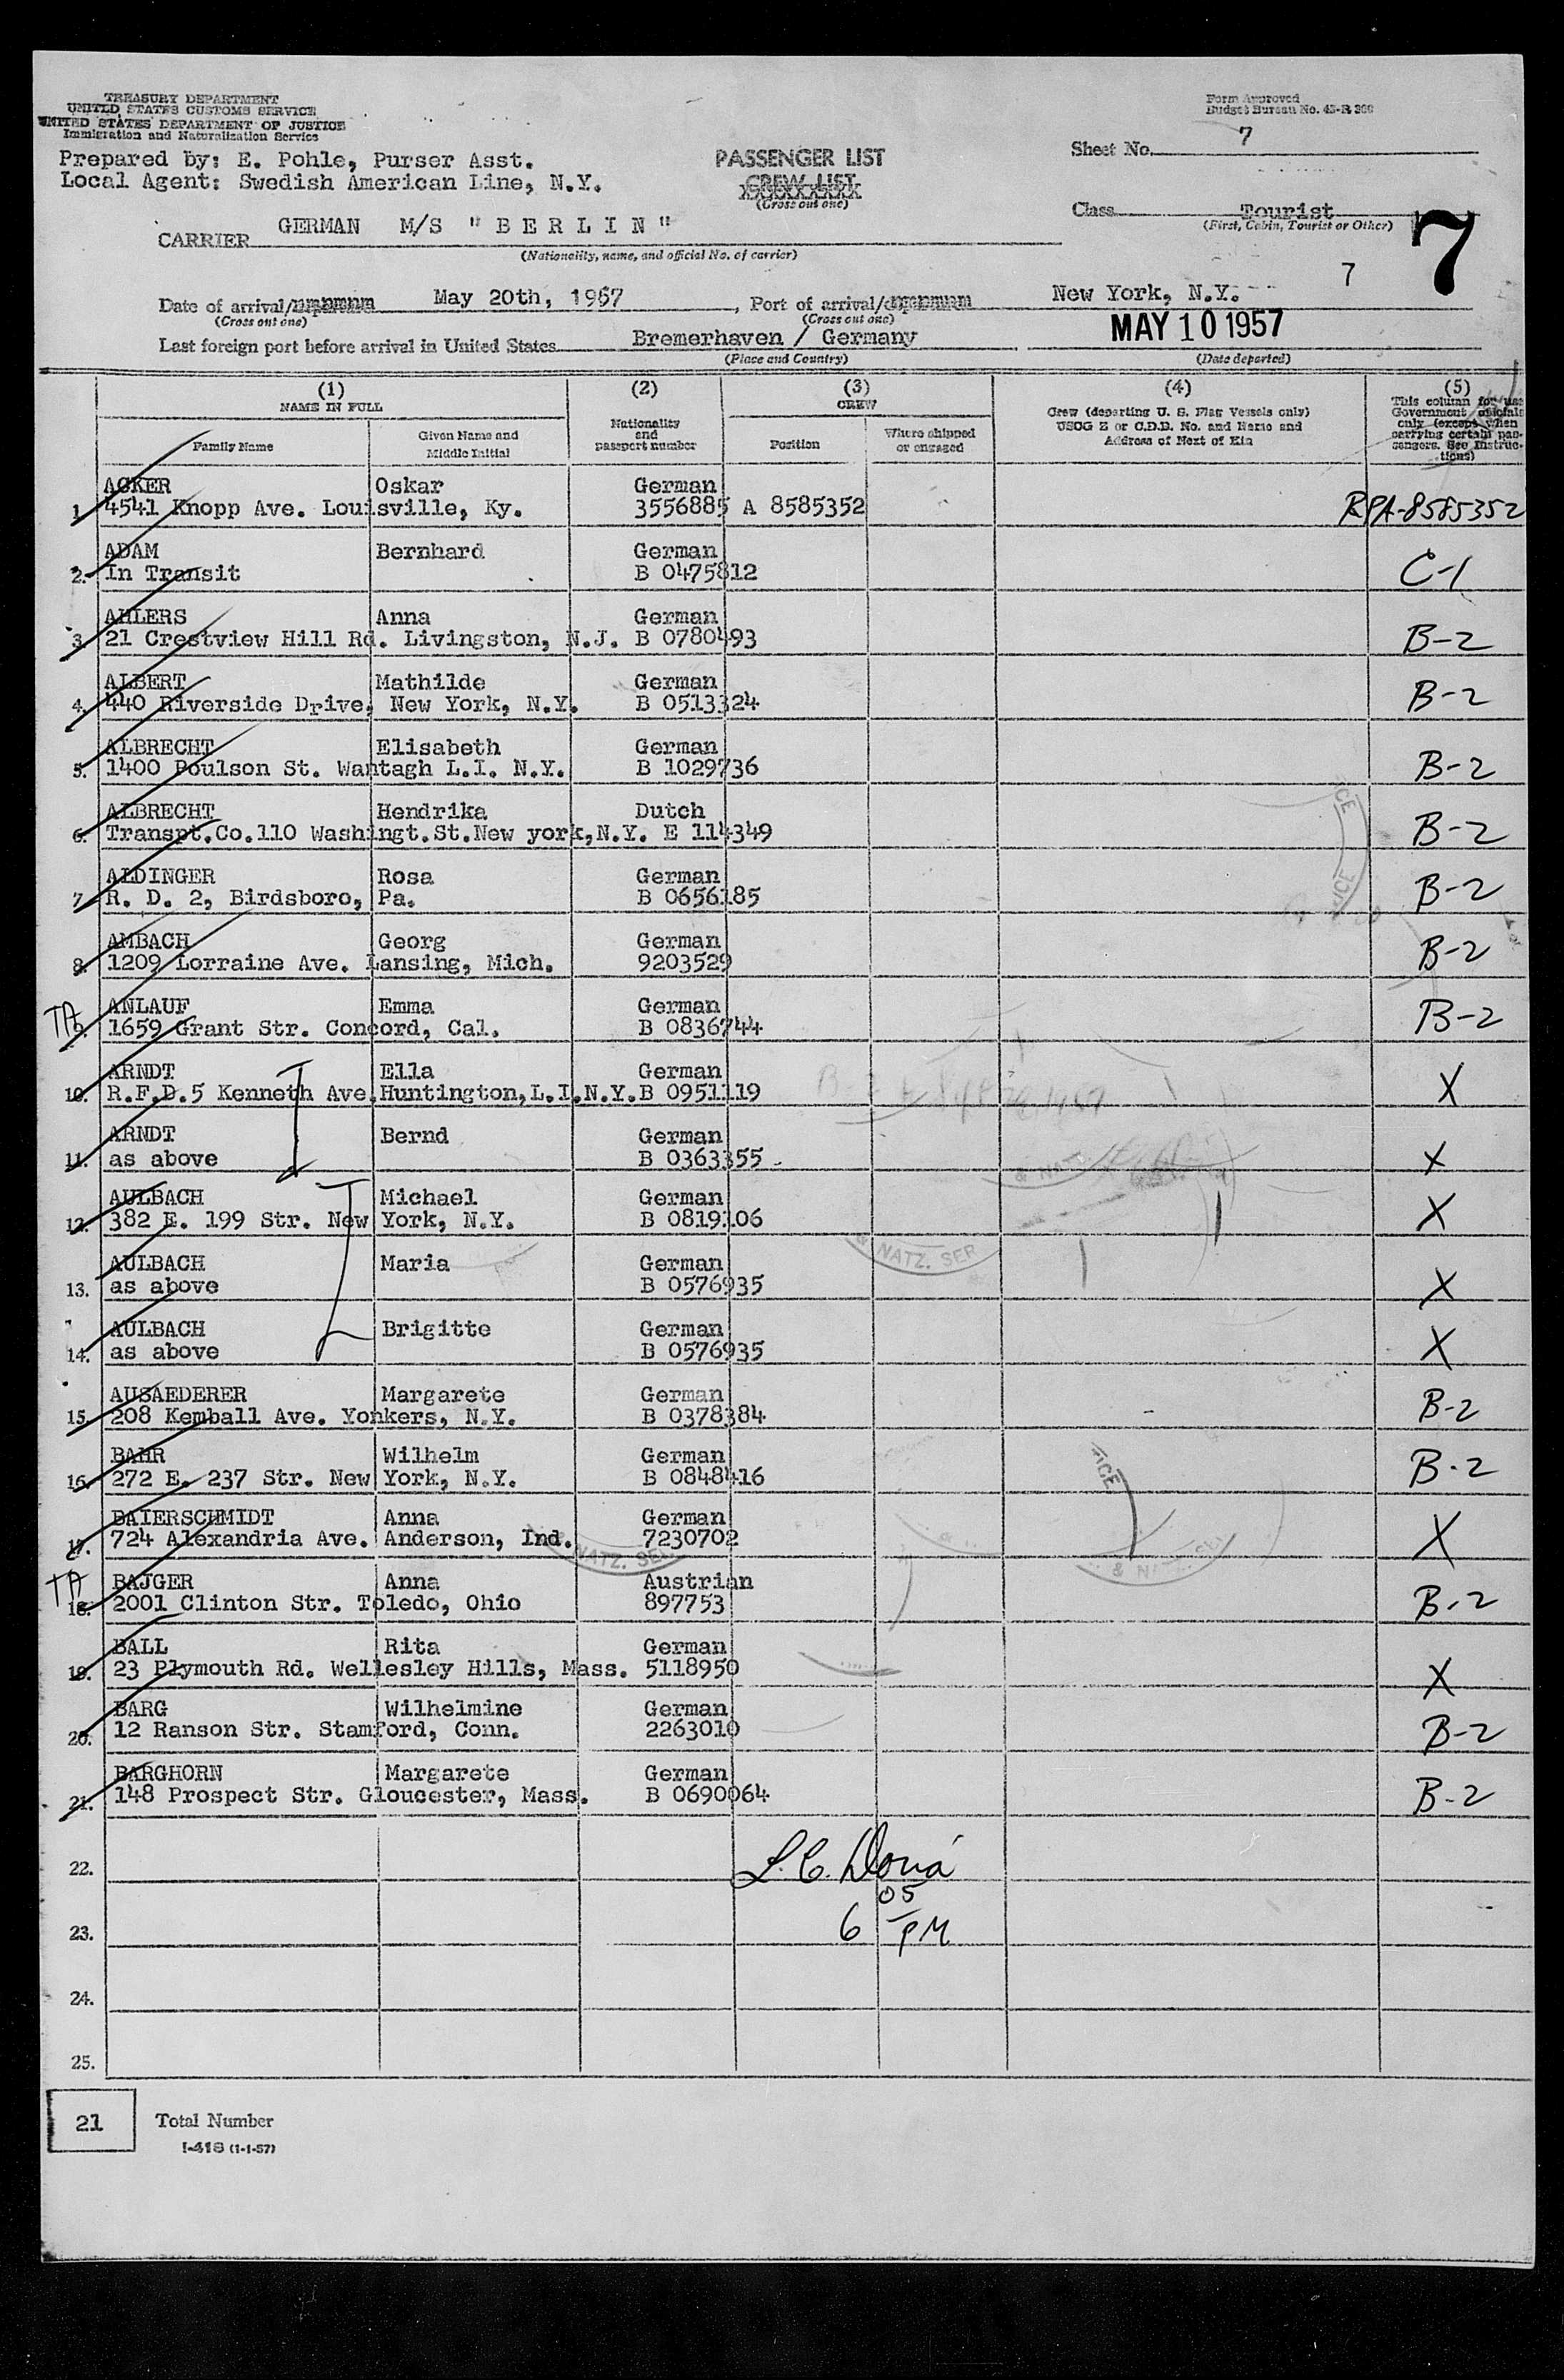 TREASURY DEPARTMENT
UNITED STATES CUSTOMS SERVICE
UNITED STATES DEPARTMENT OF JUSTICE
Immigration and Naturalization Service
Form Approved
Budget Bureau No. 43-R 300
Prepared by: E. Pohle, Purser Asst.
Local Agent: Swedish American Line, N.Y.
PASSENGER LIST
CREW LIST
(Cross out one)
Sheet No. 7
Class Tourist
(First, Cabin, Tourist or Other)
7
CARRIER GERMAN M/S " B E R L I N "
(Nationality, name, and official No. of carrier)
7
Date of arrival/ May 20th, 1957, Port of arrival/ New York, N.Y.
(Cross out one) (Cross out one)
Last foreign port before arrival in United States Bremerhaven / Germany MAY 10 1957
(Place and Country) (Date departed)
(1) (2) (3) (4) (5)
NAME IN FULL
Family Name
Given Name and Middle Initial
Nationality and passport number
CREW
Position
Where shipped or engaged
Crew (departing U. S. Flag Vessels only)
USCG Z or C.D.B. No. and Name and
Address of Next of Kin
This column for use
Government officials
only (except when
carrying certain pas-
sengers. See Instruc-
tions)
ACKER Oskar German
1. 4541 Knopp Ave. Louisville, Ky. 3556885 A 8585352 RPA-8585352
ADAM Bernhard German
2. In Transit B 0475812 C-1
AHLERS Anna German
3. 21 Crestview Hill Rd. Livingston, N.J. B 0780493 B-2
ALBERT Mathilde German
4. 440 Riverside Drive, New York, N.Y. B 0513324 B-2
ALBRECHT Elisabeth German
5. 1400 Poulson St. Wantagh L.I. N.Y. B 1029736 B-2
ALBRECHT Hendrika Dutch
6. Transpt.Co.110 Washingt.St.New york,N.Y. E 114349 B-2
ALDINGER Rosa German
7. R. D. 2, Birdsboro, Pa. B 0656185 B-2
AMBACH Georg German
8. 1209 Lorraine Ave. Lansing, Mich. 9203529 B-2
TA ANLAUF Emma German
9. 1659 Grant Str. Concord, Cal. B 0836744 B-2
ARNDT Ella German
10. R.F.D.5 Kenneth Ave.Huntington,L.I.N.Y. B 0951119 X
ARNDT Bernd German
11. as above B 0363355 X
AULBACH Michael German
12. 382 E. 199 Str. New York, N.Y. B 0819106 X
AULBACH Maria German
13. as above B 0576935 X
AULBACH Brigitte German
14. as above B 0576935 X
AUSAEDERER Margarete German
15. 208 Kemball Ave. Yonkers, N.Y. B 0378384 B-2
BAHR Wilhelm German
16. 272 E. 237 Str. New York, N.Y. B 0848416 B-2
BAIERSCHMIDT Anna German
17. 724 Alexandria Ave. Anderson, Ind. 7230702 X
TA BAJGER Anna Austrian
18. 2001 Clinton Str. Toledo, Ohio 897753 B-2
BALL Rita German
19. 23 Plymouth Rd. Wellesley Hills, Mass. 5118950 X
BARG Wilhelmine German
20. 12 Ranson Str. Stamford, Conn. 2263010 B-2
BARGHORN Margarete German
21. 148 Prospect Str. Gloucester, Mass. B 0690064 B-2
22.
23. 6 05 PM
24.
25.
21 Total Number
I-418 (1-1-57)